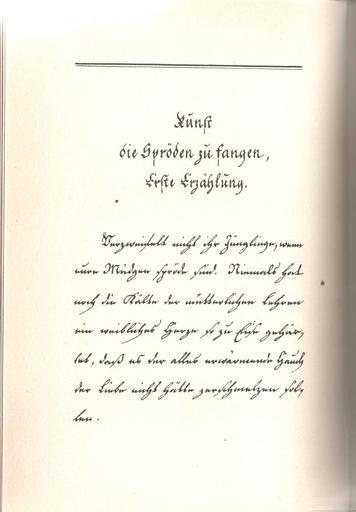 Kunst
die Spröden zu fangen,
Erste Erzählung.
Verzweifelt nicht ihr Jünglinge, wenn
eure Mädgen spröde sind. Niemals hat
noch die Kälte der mütterlichen Lehren
ein weibliches Herze so zu Eise gehär-
tet, daß es der alles erwärmende Hauch
der Liebe nicht hätte zerschmelzen sol-
len.